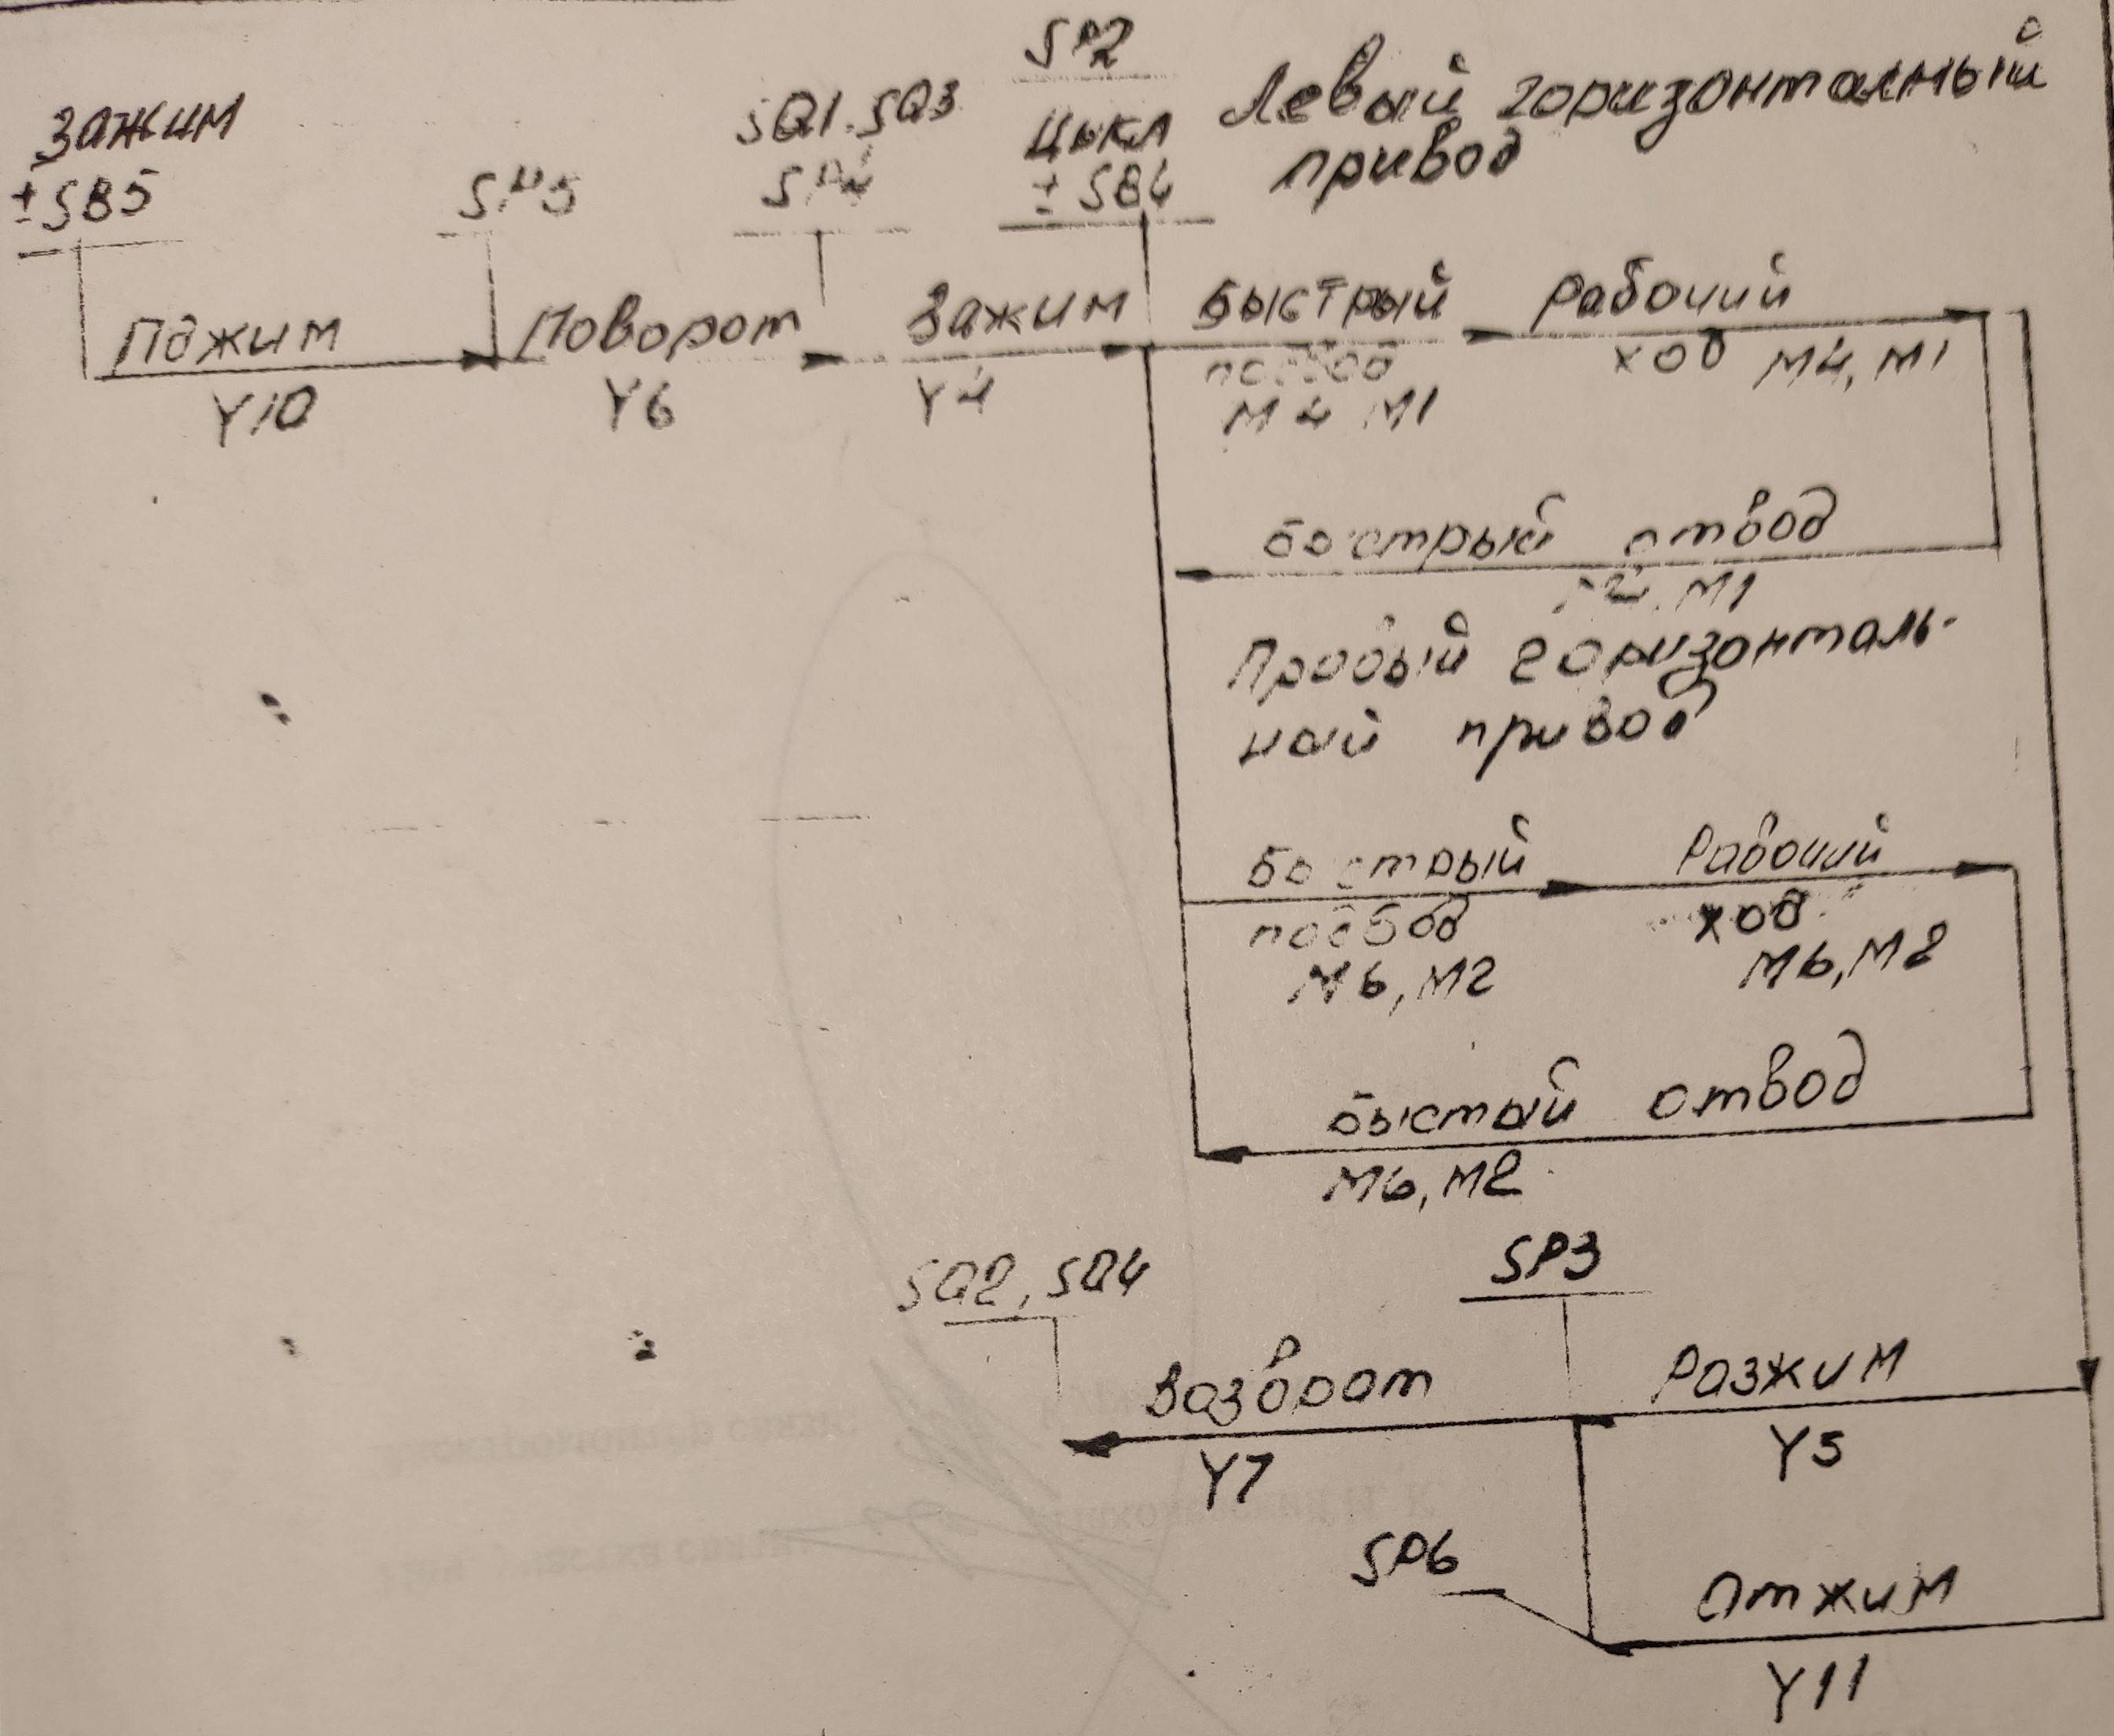 SP2
Зажим
±SB5
SP5
SQ1.SQ3
Цыкл
± SB4
Левый горизонталный
привод
Пджим
Y10
Поворот
Y6
Зажим
Y4
Быстрый
М4 М1
Рабочий
ход М4, М1
быстрый отвод
М1
Правый горизонталь-
ный привод
Быстрый
подвод
М6, М2
Рабочий
ход
М6, М2
быстый отвод
М6, М2
SQ2, SQ4
SP3
Возврат
Y7
Разжим
Y5
SP6
Отжим
Y11